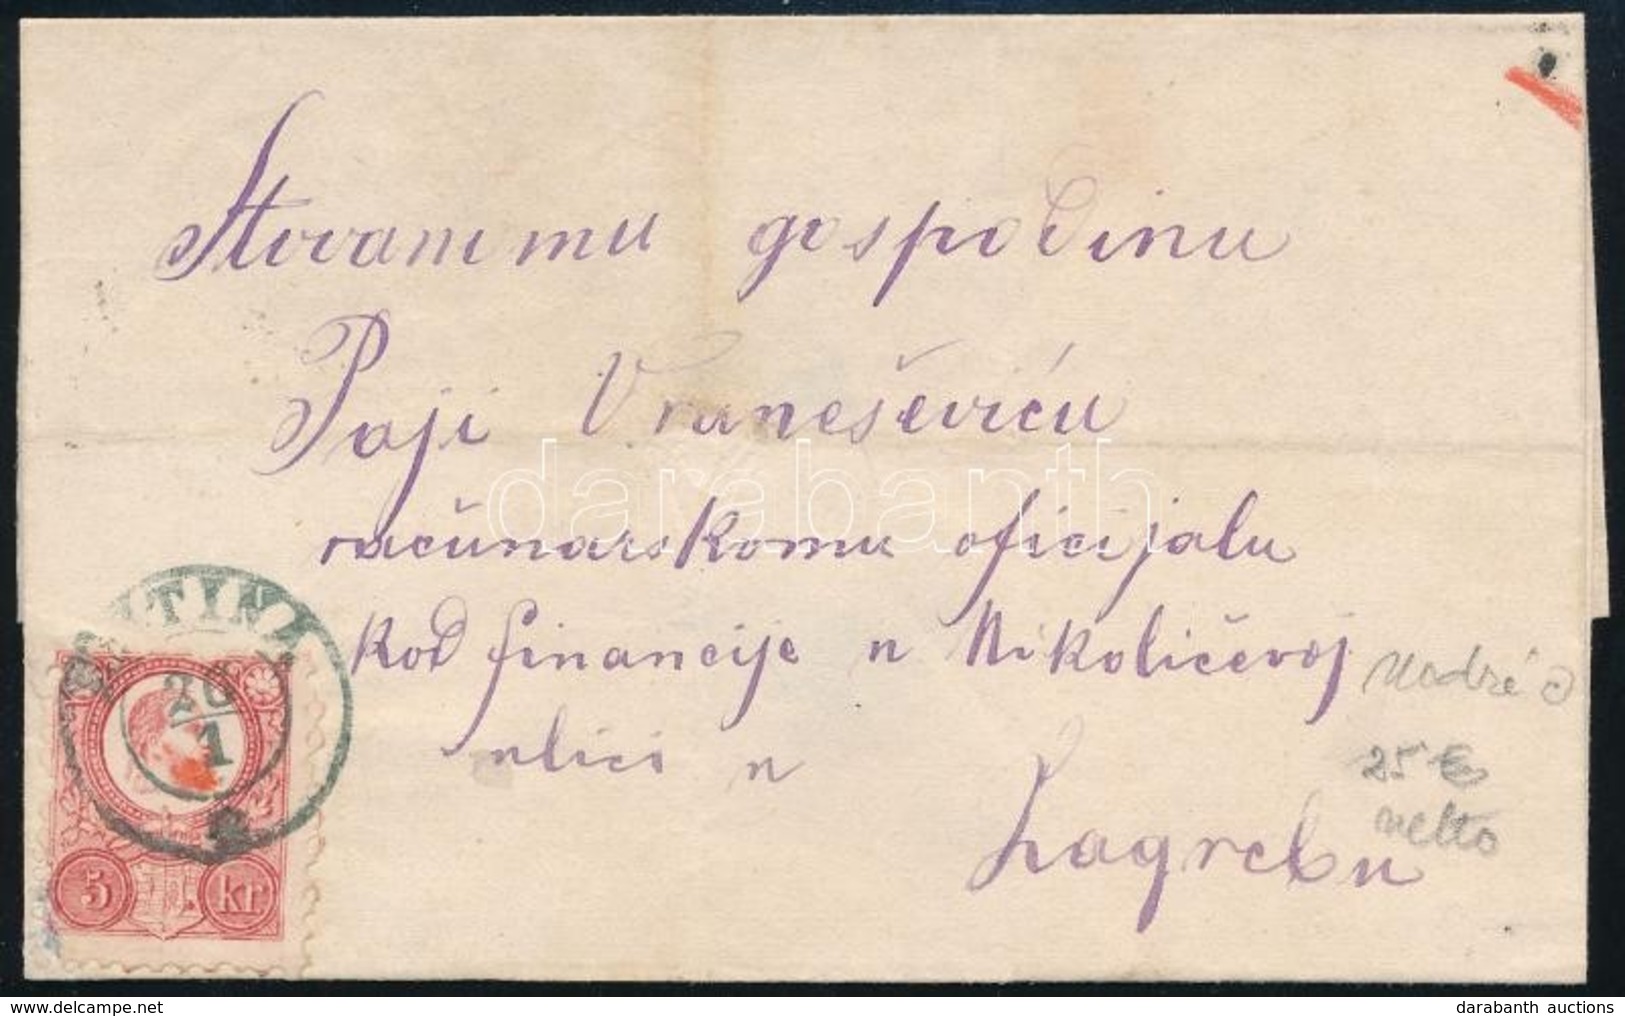 Štovanomu gospodinu
Paji Vraneševiću
računarskomu oficijalu
kod financije u Nikolićevoj
ulici u
Zagrebu
26
1
5 kr
25 €
netto
darabanth
delcampe.net
darabanth auctions